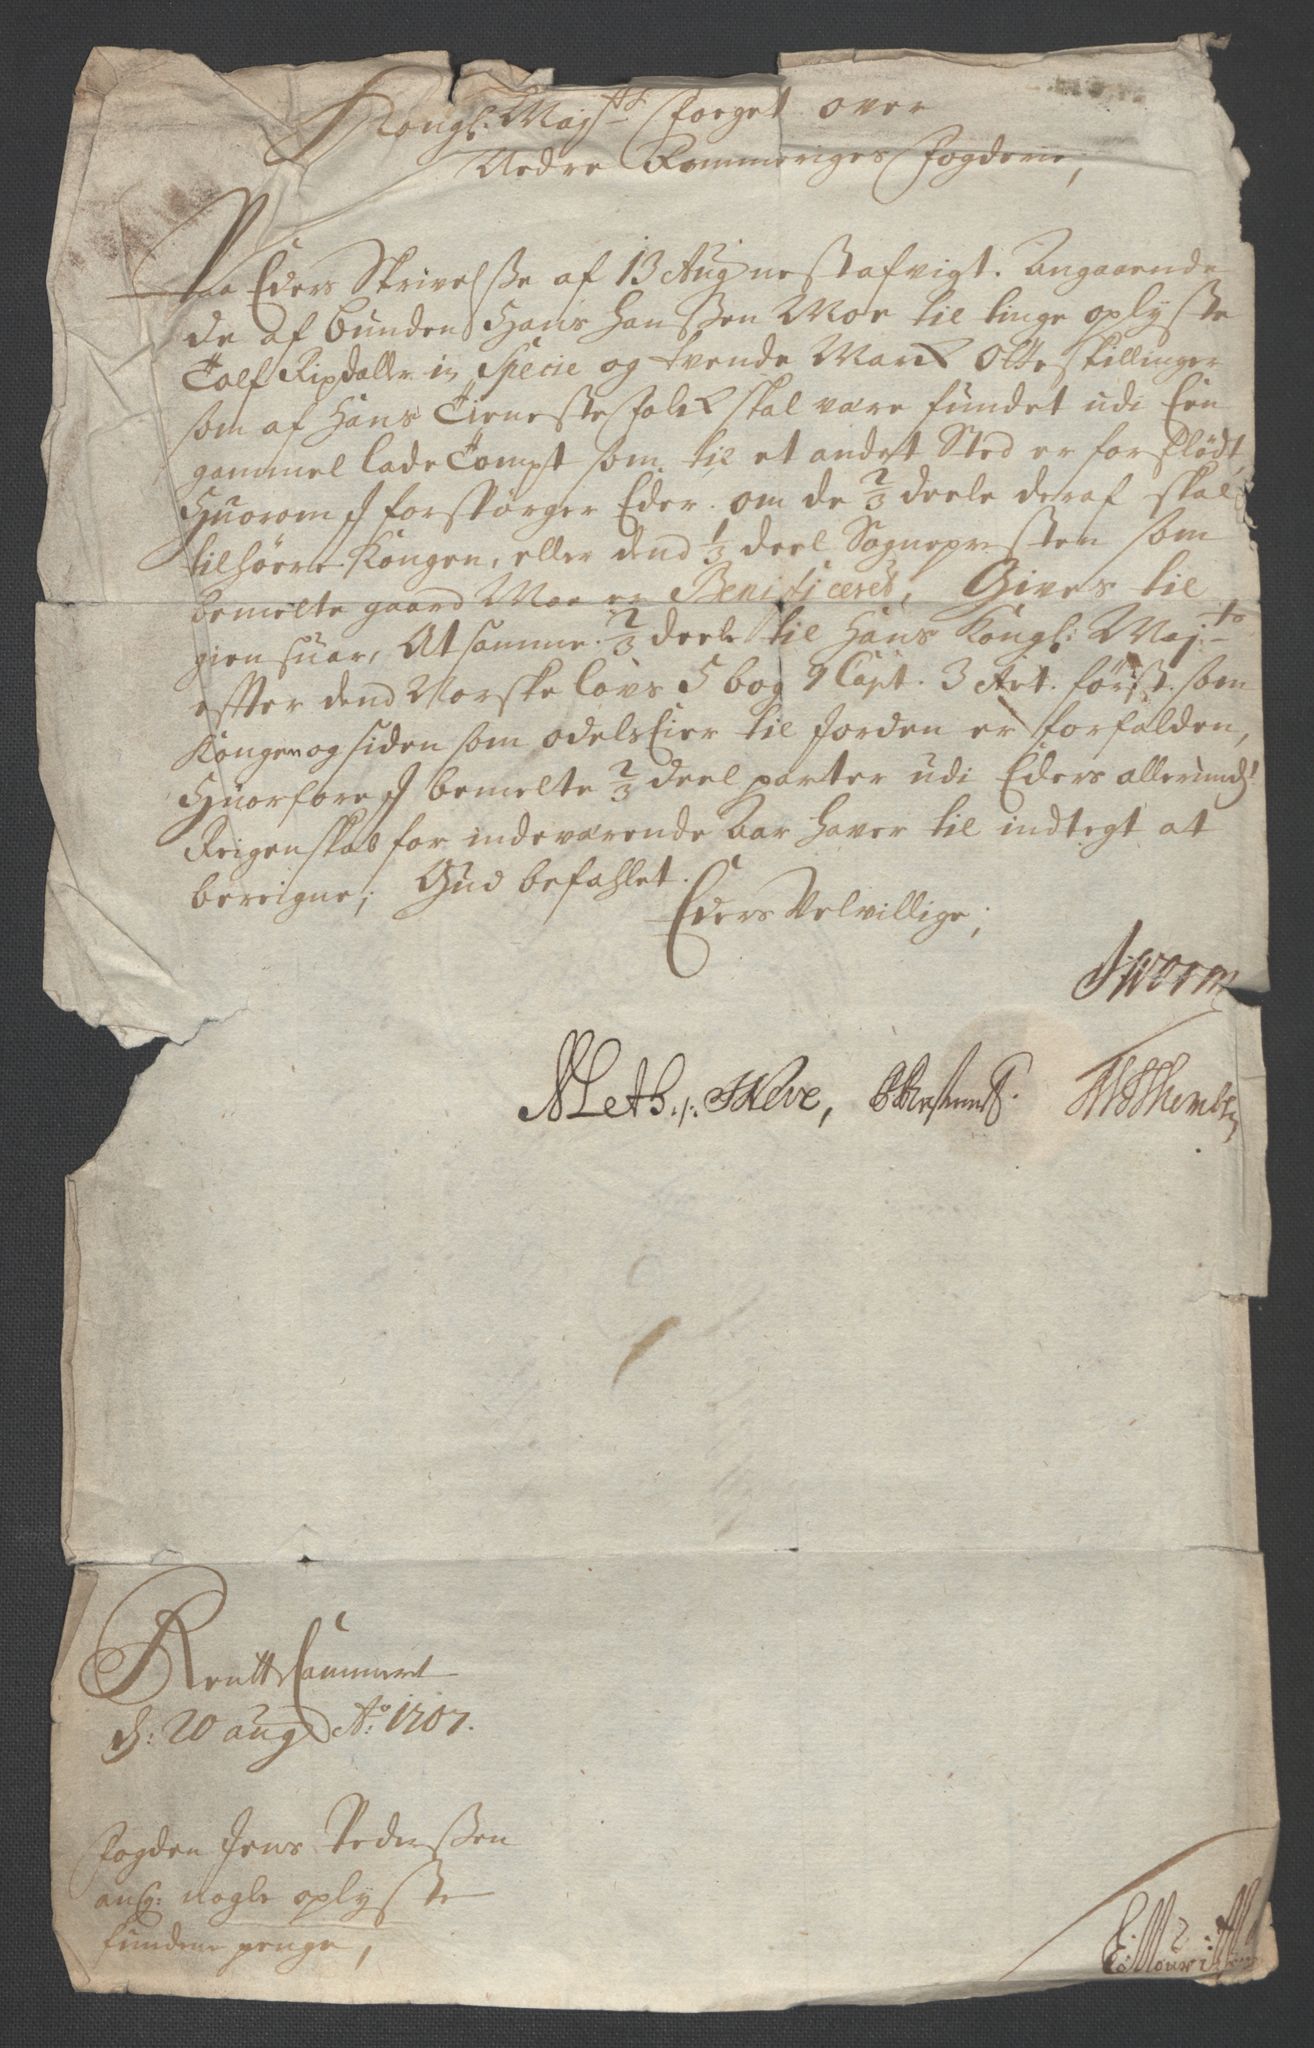 Kongl: Maj.ts foeget over
Nedre Rommeriges fogderie,
Paa Eders Skrivelsse af 13 Aug nestafvigt. Angaaende
de af bunden Hans Hanssen Moe til tinge oplyste
Tolf Rixdaller in Specie og tvende Mark Otte skillinger
som af Hans Tieneste folk skal være fundet udi Een
gammel lade Tompt som til et andet Sted er forflødt,
Huorom I forspørger Eder. om de 2/3 deele deraf skal
tilhøere Kongen, eller dend 1/3 deel Sognepresten som
bemelte gaard Moe er Benificeret, Gives til
giensuar, At samme 2/3 deele til Hans Kongl: Maj:to
efter dend Norske lovs 5 bog 9 Capt. 3 Art. først som
Kongen og siden som odels Eier til Jorden er forfalden,
Huorfore I bemelte 2/3 deel parter udi Eders allerund:
Reigenskab for indeværende Aar haver til indtegt at
bereigne; Gud befahlet.
Eders Velvillige;
JWorm
Meth:
Rentte Cammeret
d: 20 aug Ao: 1707.
Fogden Jens Pederssen
ang: nogle oplyste
fundene penge,